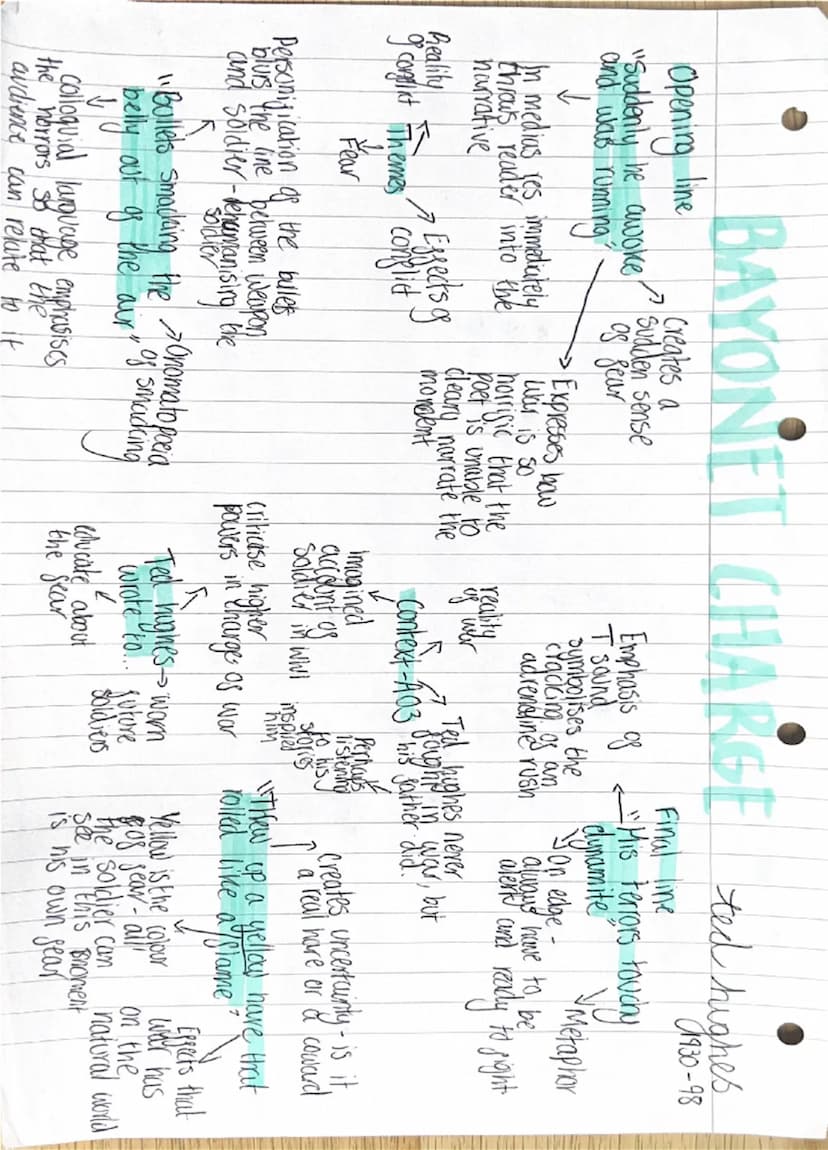 BAYONET CHARGE
ted hughes
1930-98
Opening line
"Suddenly he awoke
and was running"
Creates a
sudden sense
of fear
In medias res immediately
throws reader into the
narrative
Expresses how
war is so
horrific that the
poet is unable to
clearly narrate the
moment
Themes
Reality
of conflict
Fear
Effects of
conflict
Personification of the bullets
blurs the line between weapon
and soldier - dehumanising the
soldier
"Bullets smacking the
belly out of the air"
Onomatopoeia
of smacking
colloquial language emphasises
the horrors so that the
audience can relate to it
Final line
"His terrors touchy
dynamite"
Metaphor
On edge -
always have to be
alert and ready to fight
Emphasis of
T sound
symbolises the
cracking of an
adrenaline rush
Context - A03
reality
of war
Ted hughes never
fought in war, but
his father did.
perhaps
listening
to his
stories
inspired
him
Imagined
account of
soldier in WW1
Ted hughes
wrote to...
criticise higher
powers in charge of war
warn
future
soldiers
educate about
the fear
"Threw up a yellow hare that
rolled like a flame"
Creates uncertainty - is it
a real hare or a coward
Yellow is the colour
of fear - all
the soldier can
see in this moment
is his own fear
Effects that
war has
on the
natural world